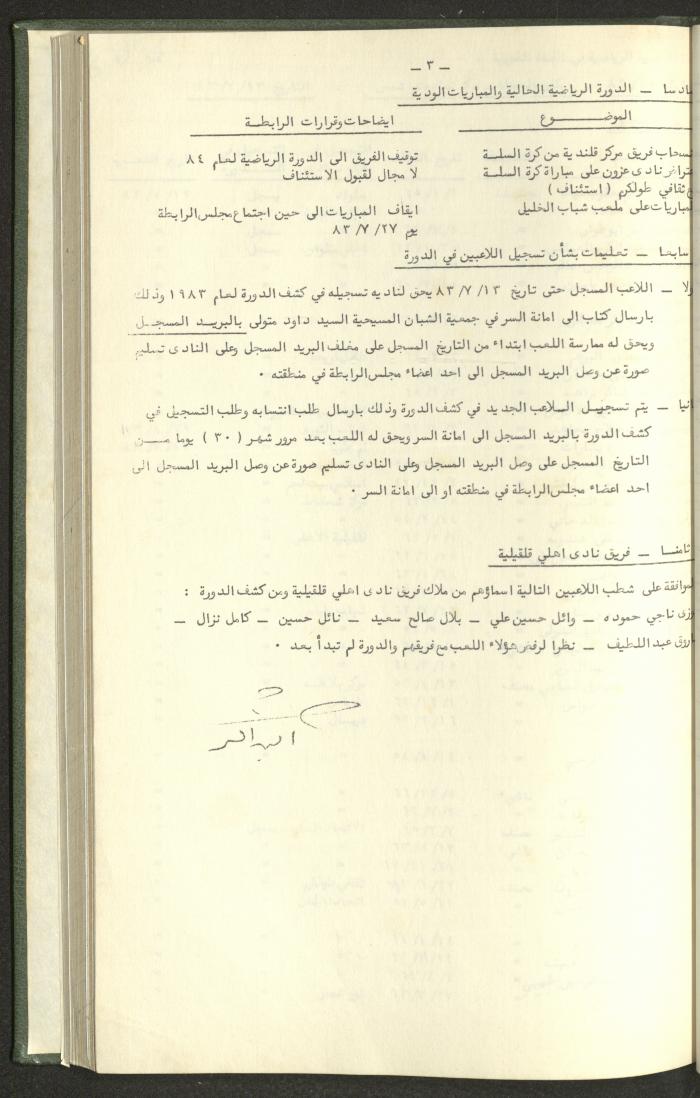 - ٣ -
ادسا - الدورة الرياضية الحالية والمباريات الودية
الموضــــــوع ايضاحات وقرارات الرابطـة
نسحاب فريق مركز قلندية من كرة السلـة توقيف الفريق الى الدورة الرياضية لعام ٨٤
تراض نادى عزون على مباراة كرة السلـة لا مجال لقبول الاستئناف
ع ثقافي طولكرم ( استئناف )
لمباريات على ملعب شباب الخليل ايقاف المباريات الى حين اجتماع مجلس الرابطة
يوم ٨٣/٧/٢٧
سابعا - تعليمات بشأن تسجيل اللاعبين في الدورة
ولا - اللاعب المسجل حتى تاريخ ٨٣/٧/١٣ يحق لناديه تسجيله في كشف الدورة لعام ١٩٨٣ وذلك
بارسال كتاب الى امانة السر في جمعية الشبان المسيحية السيد داود متولى بالبريـد المسجـل
ويحق له ممارسة اللعب ابتداء من التاريخ المسجل على مغلف البريد المسجل وعلى النادى تسليم
صورة عن وصل البريد المسجل الى احد اعضاء مجلس الرابطة في منطقته ٠
انيا - يتم تسجيـل اللاعب الجديد في كشف الدورة وذلك بارسال طلب انتسابه وطلب التسجيل في
كشف الدورة بالبريد المسجل الى امانة السر ويحق له اللعب بعد مرور شهر ( ٣٠ ) يوما مـــن
التاريخ المسجل على وصل البريد المسجل وعلى النادى تسليم صورة عن وصل البريد المسجل الى
احد اعضاء مجلس الرابطة في منطقته او الى امانة السر ٠
ثامنـا - فريق نادى اهلي قلقيلية
موافقة على شطب اللاعبين التالية اسماؤهم من ملاك فريق نادى اهلي قلقيلية ومن كشف الدورة :
وزى ناجي حموده - وائل حسين علي - بلال صالح سعيد - نائل حسين - كامل نزال -
اروق عبد اللطيف - نظرا لرفض هؤلاء اللعب مع فريقهم والدورة لم تبدأ بعد ٠
امين السر